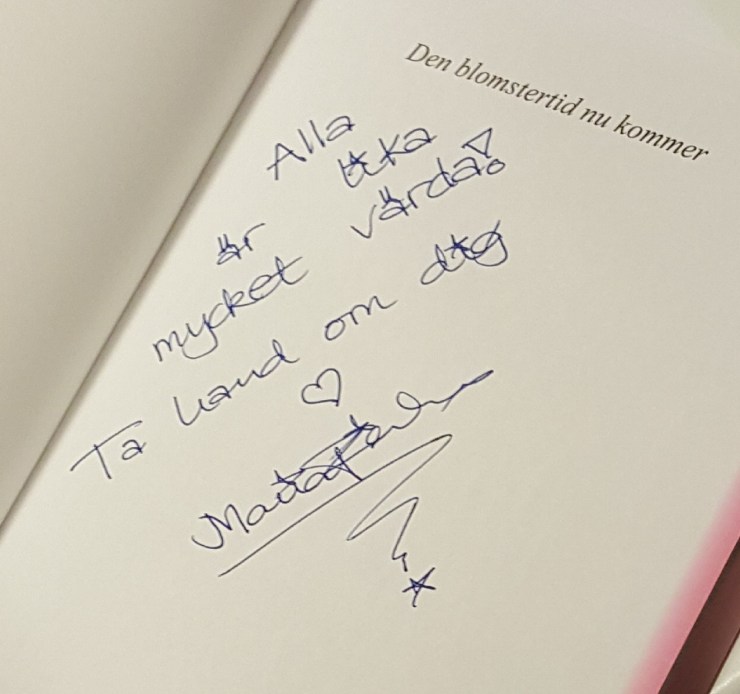 Den blomstertid nu kommer
Alla
är lika
mycket värda!
Ta hand om dig